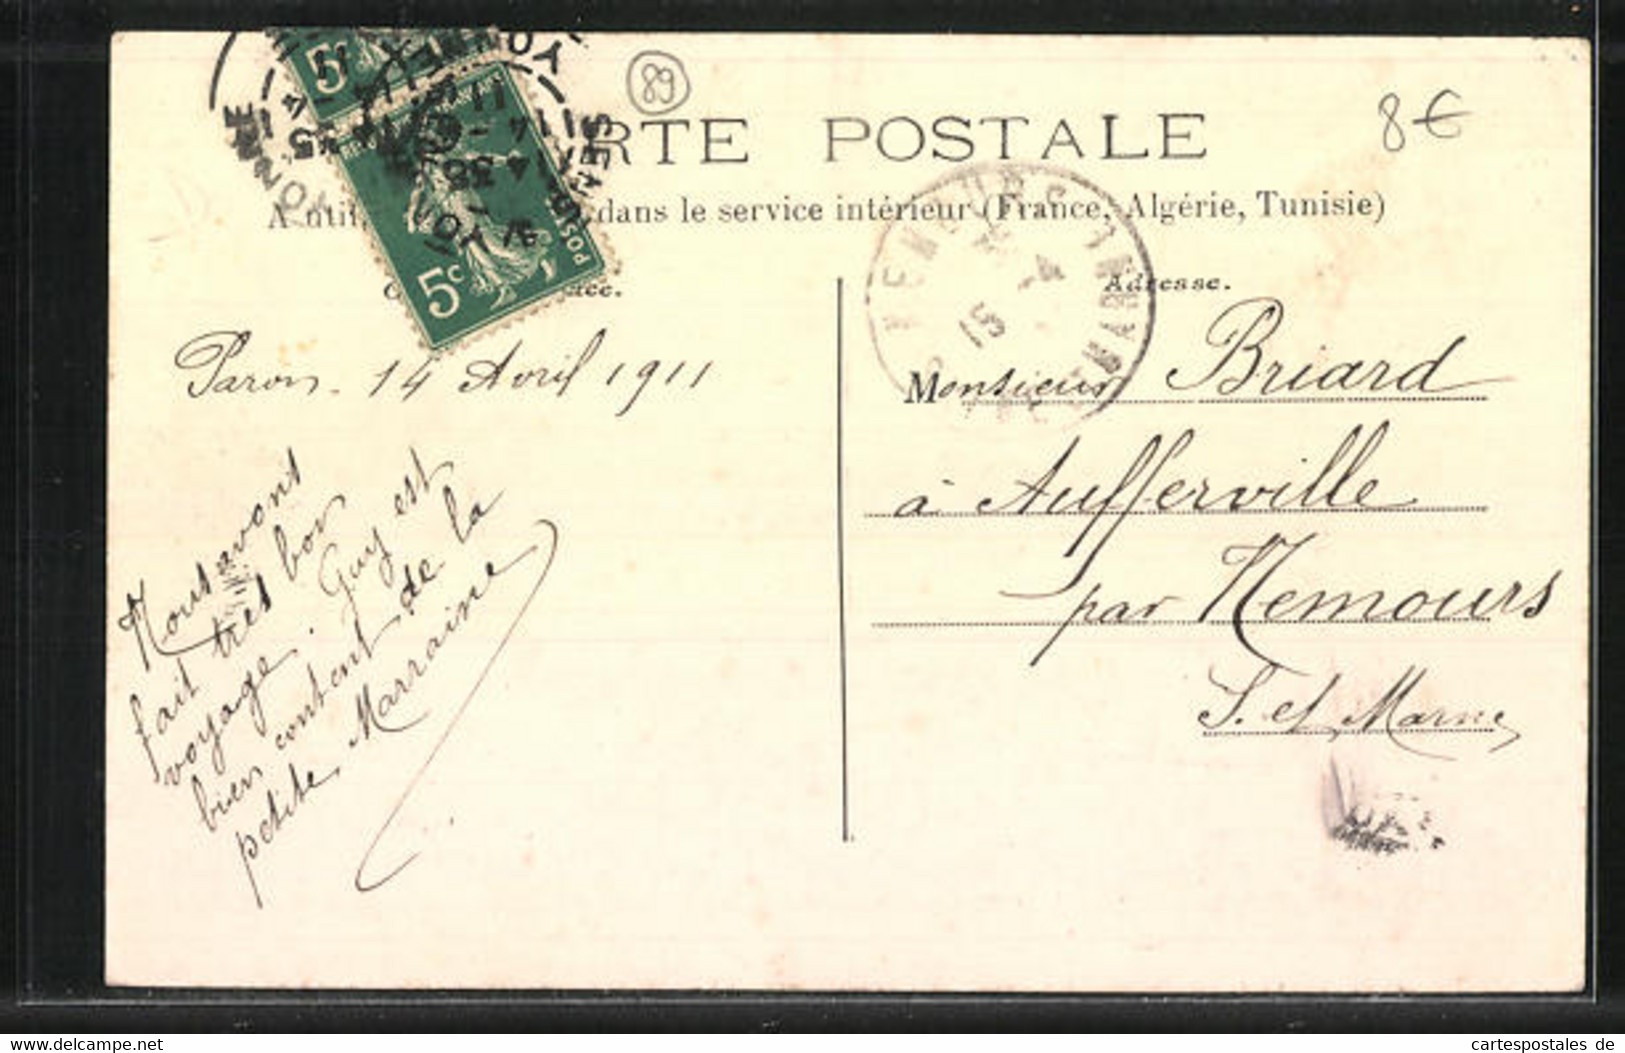 89
8€
RTE POSTALE
dans le service intérieur (France, Algérie, Tunisie)
5c
5c
POSTES
YONNE
SENS
14 - 4
35
11
NEMOURS
15 - 4
MARNE
Adresse.
Paron. 14 Avril 1911
Nous avons
fait très bon
voyage. Guy est
bien content de la
petite Marraine
Monsieur Briard
à Aufferville
par Nemours
S. et Marne
www.cartespostales.de
cartespostales de